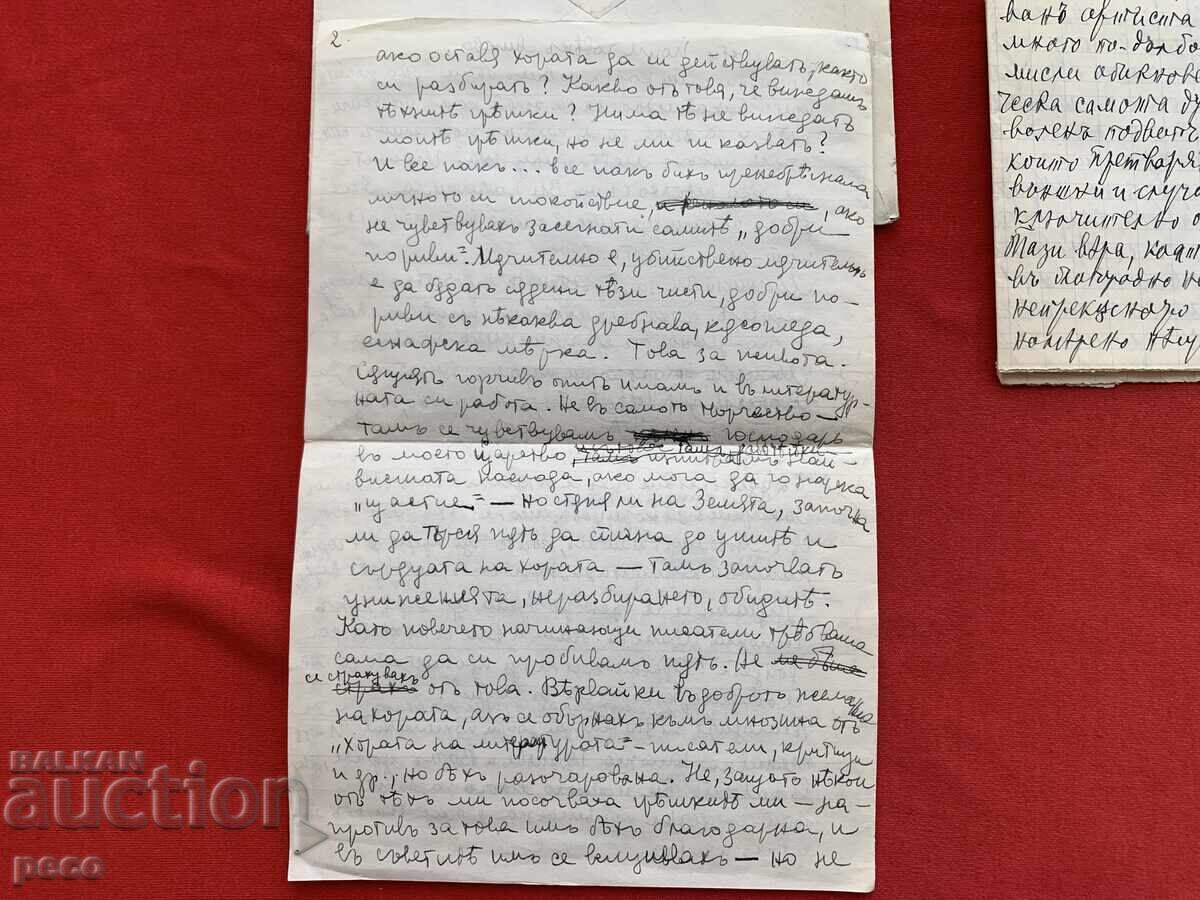 2.
ако оставя хората да си действуватъ, както
си разбиратъ? Какво отъ това, че виждамъ
тѣхнитѣ грѣшки? Нима тѣ не виждатъ
моитѣ грѣшки, но не ми ги казватъ?
И все пакъ... все пакъ бихъ пренебрѣгнала
личното си спокойствие, , ако
не чувствувахъ засегнати самитѣ „добри
пориви". Мѫчително е, убийствено мѫчително
е да бѫдатъ сѫдени тѣзи чисти, добри по-
риви съ нѣкаква дребнава, кѫсогледа,
еснафска мѣрка. Това за живота.
Сѫщиятъ горчивъ опитъ имамъ и въ литератур-
ната си работа. Не въ самото творчество –
тамъ се чувствувамъ господарь
въ моето царство, тамъ изпитвамъ най-
висшата наслада, ако мога да го нарека
„щастие" – но стѫпя ли на Земята, започна
ли да търся пѫть да стигна до умитѣ и
сърдцата на хората – тамъ започватъ
униженията, неразбирането, обидитѣ.
Като повечето начинаещи писатели трѣбваше
сама да си пробивамъ пѫть. Не
се страхувахъ отъ това. Вѣрвайки въ доброто желание
на хората, азъ се обърнахъ къмъ мнозина отъ
„хората на литературата" – писатели, критици
и др., но бѣхъ разочарована. Не, защото нѣкои
отъ тѣхъ ми посочваха грѣшкитѣ ми – на-
противъ за това имъ бѣхъ благодарна, и
въ съветитѣ имъ се вслушвахъ – но не
ванъ артиста
много по-дълбо
мисли обикнове
ческа самота
които претваря
външни и случ
ключително
Тази вѣра, коят
BALKAN
auction
peco